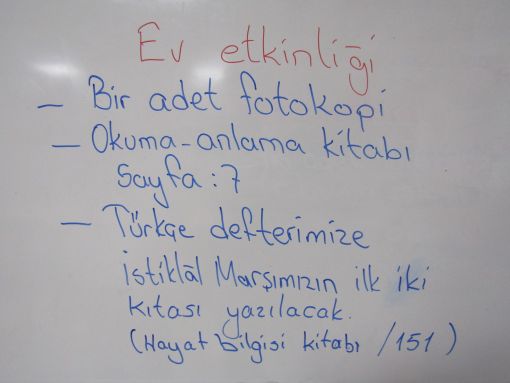 Ev etkinliği
- Bir adet fotokopi
- Okuma-anlama kitabı
Sayfa:7
- Türkçe defterimize
istiklâl Marşımızın ilk iki
kıtası yazılacak.
(Hayat bilgisi kitabı /151)